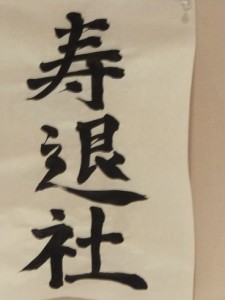 寿退社